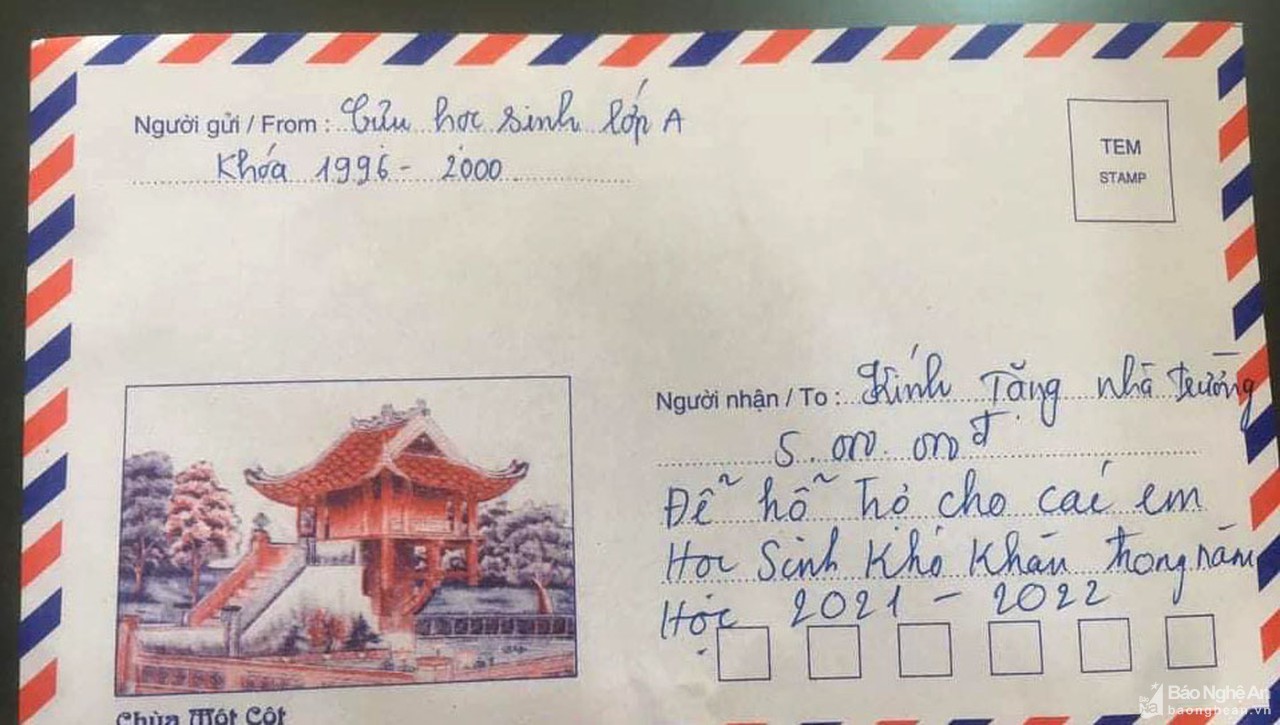 Người gửi / From : Cựu học sinh lớp A
Khóa 1996 - 2000
TEM
STAMP
Người nhận / To : Kính Tặng nhà trường
5.000.000đ
Để hỗ trợ cho các em
Học Sinh Khó Khăn trong năm
Học 2021 - 2022
Chùa Một Cột
Báo Nghệ An
baonghean.vn